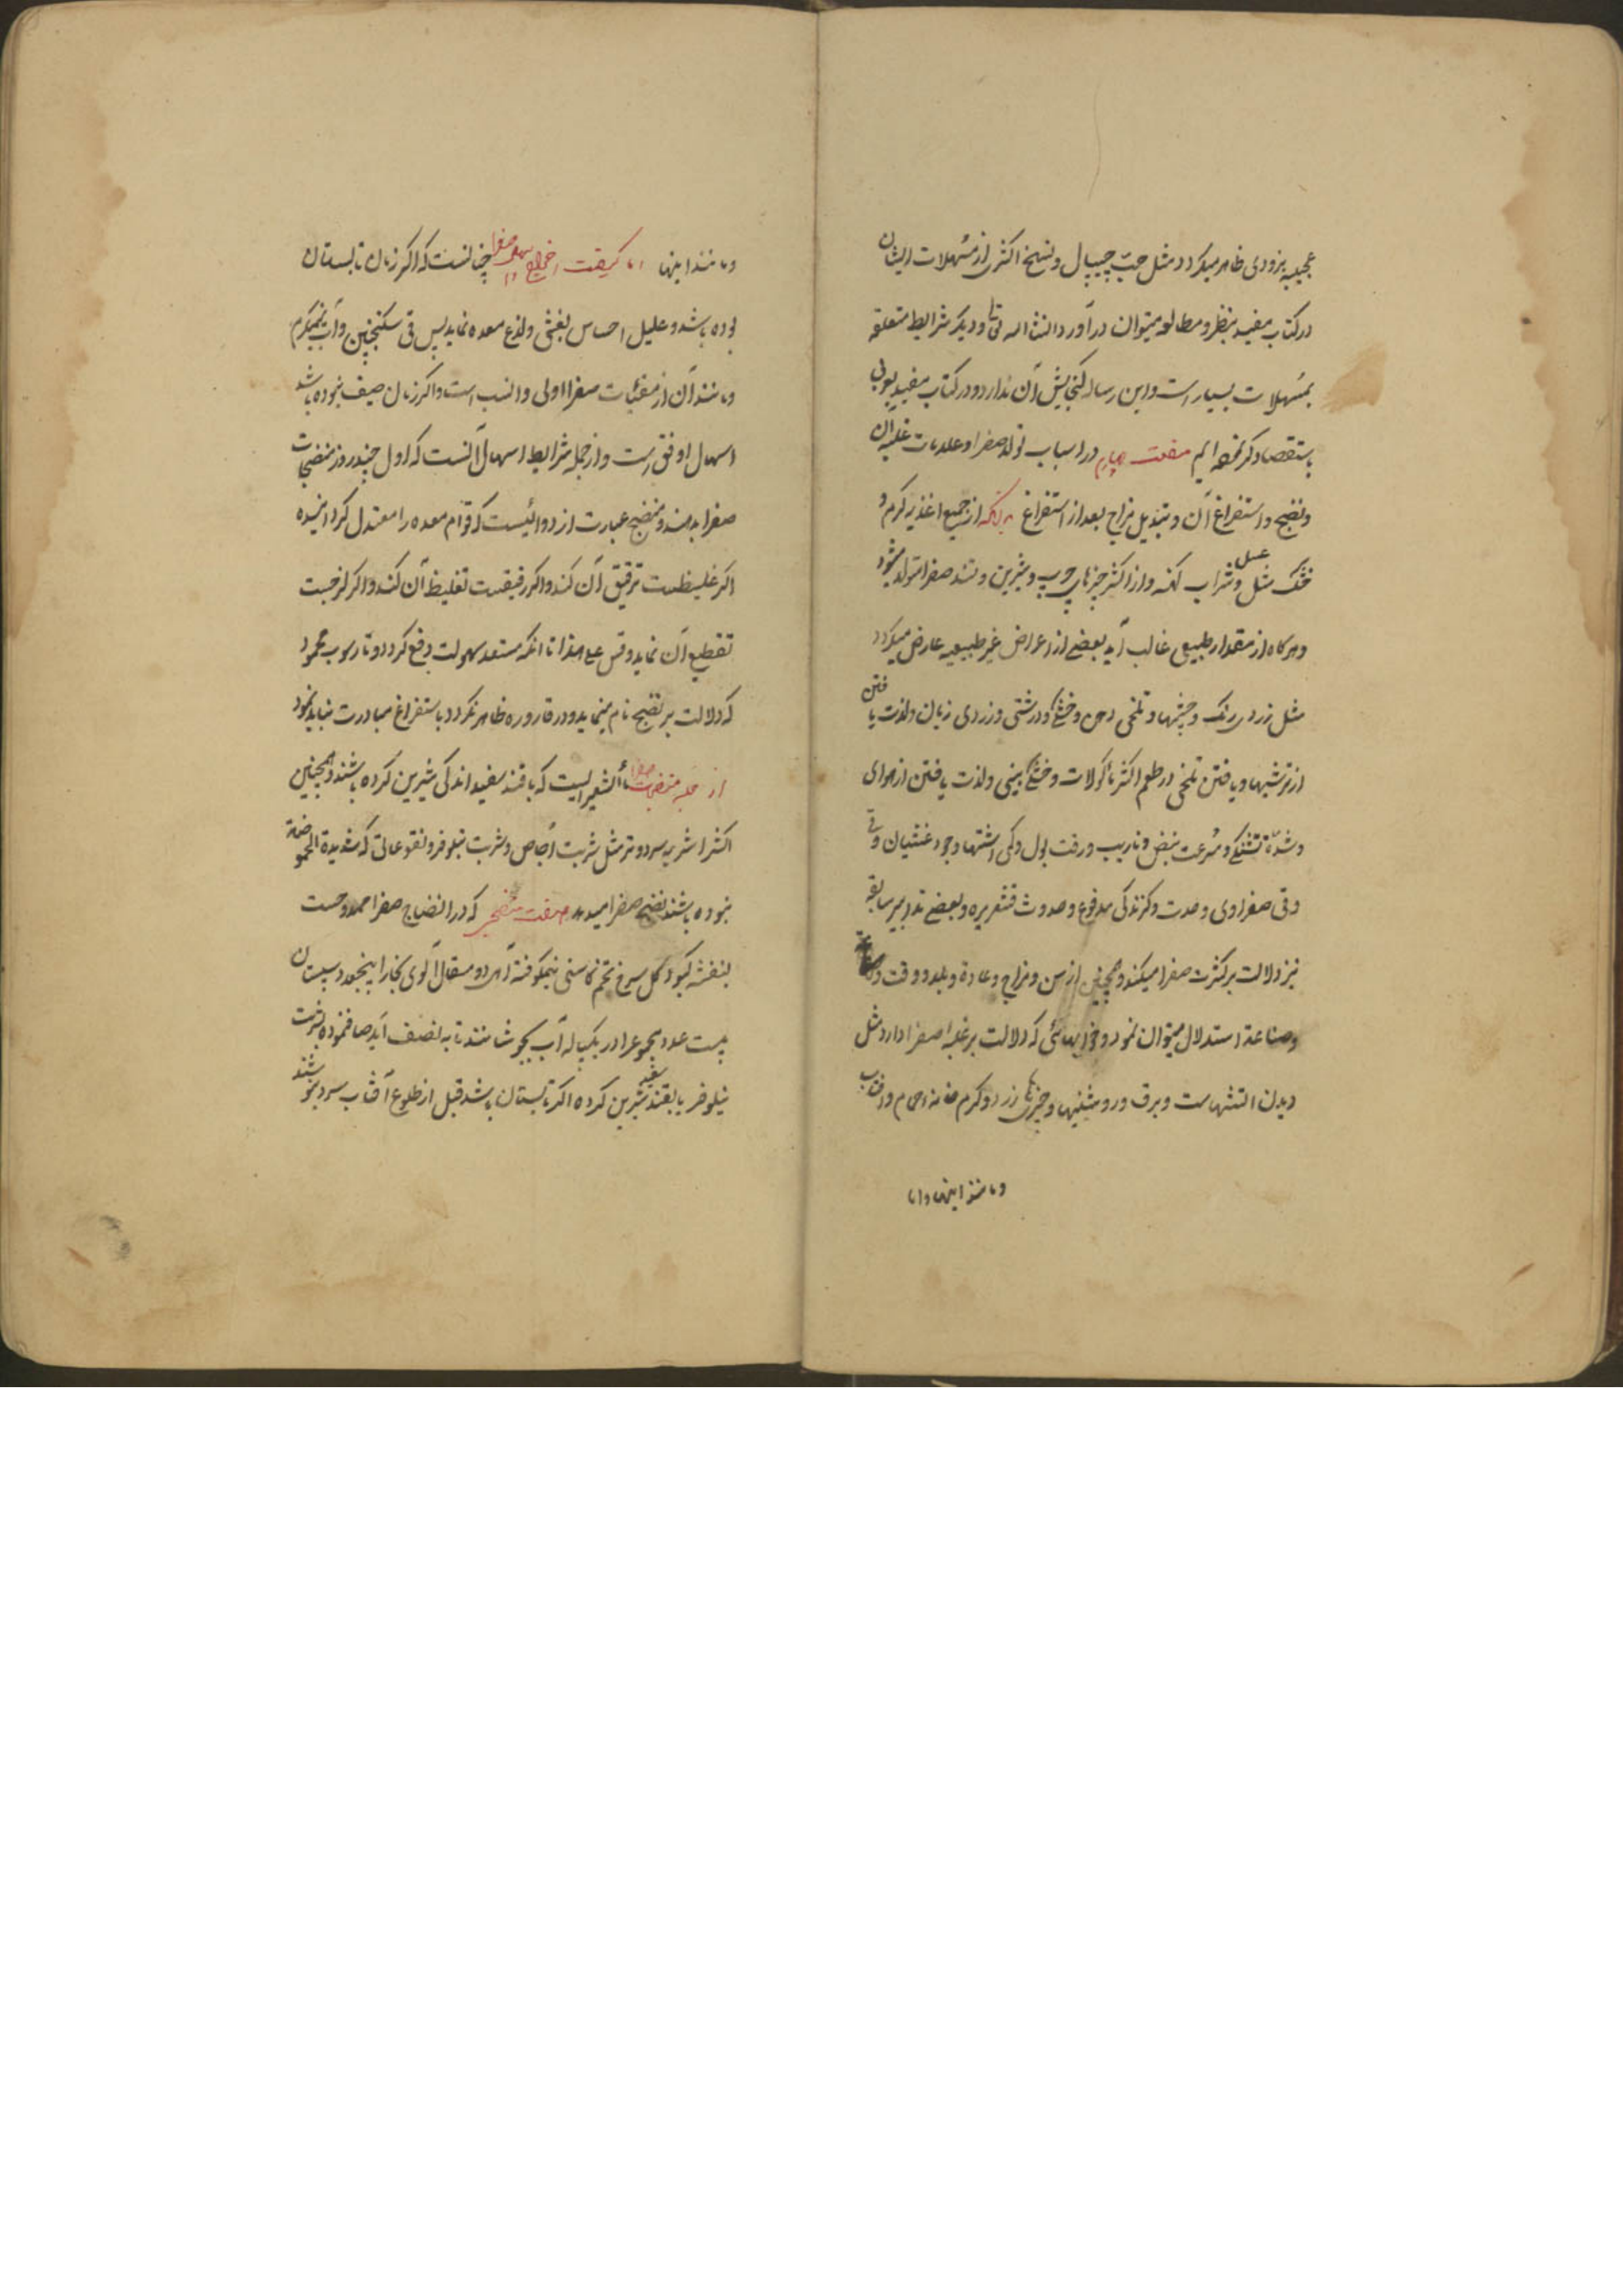 عجیبه بزودی ظاهر میکردد مثل حبّ جیپال و نسخ اکثری از مُسْهلات ایشان
در کتاب مفید بنظر و مطالعه میتوان درآورد انشااله تعالی و دیکر شرایط متعلقه
بمُسْهلات بسیار است و این رساله کنجایش آن ندارد و در کتاب مفید یوبی
باستقصا ذکر نموده ایم در اسباب تولد صفرا و علامات غلبه آن
و نضج و استفراغ آن و تبدیل مزاج بعد از استفراغ بدانکه از جمیع اغذیه کرم و
خشک مثل عسل و شراب کهنه و از اکثر چیزهای چرب و شیرین و تند صفرا متولد میشود
و هرکاه از مقدار طبیعی غالب آید بعضی از اعراض غیر طبیعیه عارض میکردد
مثل زردی رنک و چشمها و تلخی دهن و خشکی و درشتی و زردی زبان و لذت یافتن
از ترشیها و یافتن تلخی در طعم اکثر مأکولات و خشکی بینی و لذت یافتن از هوای
و شدّة تشنکی و سُرعت نبض و ورقت بول و کمی اشتها و وجود غثیان و قی
و قی صفراوی و حدت و کزندکی مدفوع و حدوث قشعریره و بعضی تدابیر سابقه
نیز دلالت بر کثرت صفرا میکند و همچنین از سن و مزاج و عادة و بلد و وقت
و صناعة استدلال میتوان نمود و خوابهائی که دلالت بر غلبه صفرا دارد مثل
دیدن آتشهاست و برق و روشنیها و چیزهای زرد و کرم خانه حمام و آفتاب
و مانند اینها و اما
و مانند اینها اما کیفیت اخراج صفرا چنانست که اکر زمان تابستان
بوده باشد و علیل احساس بغثی و لذع معده نماید پس قی سکنجبین و آب نیمکرم
و مانند آن از مقیّات صفرا اولی و انسب است و اکر زمان صیف نبوده باشد
اسهال اوفق است و از جمله شرایط اسهال آنست که اول چند روز منضجات
صفرا بدهند و منضج عبارت از دوائیست که قوام معده را معتدل کردانیده
اکر غلیظست ترقیق آن کند و اکر رقیقست تغلیظ آن کند و اکر لزجست
تقطیع آن نماید و قس علی هذا تا آنکه مستعد سهولت دفع کردد و تا رسوب محمود
که دلالت بر نضج تام مینماید و در قاروره ظاهر نکردد باستفراغ مبادرت نباید نمود
از جمله منضجات صفرا مأالشعیر ایست که با قند سفید اندکی شیرین کرده باشند و همچنین
اکثر اشربه سرد و تر مثل شربت اُجاص و شربت نیلوفر و نقوعاتی که شدیدة الحموضة
نبوده باشند نضج صفرا میدهد صفت منضجی که در انضاج صفرا ممدوحست
بنفشه کبود کل سرخ تخم کاسنی نیمکوفته از هر دو مثقال آلوی بخارا پنجعدد سپستان
بیست عدد مجموع را در یکپیاله آب بجوشانند تا به نصف آید صاف نموده بشربت
نیلوفر یا بقند سفید شیرین کرده اکر تابستان باشد قبل از طلوع آفتاب سرد بنوشند